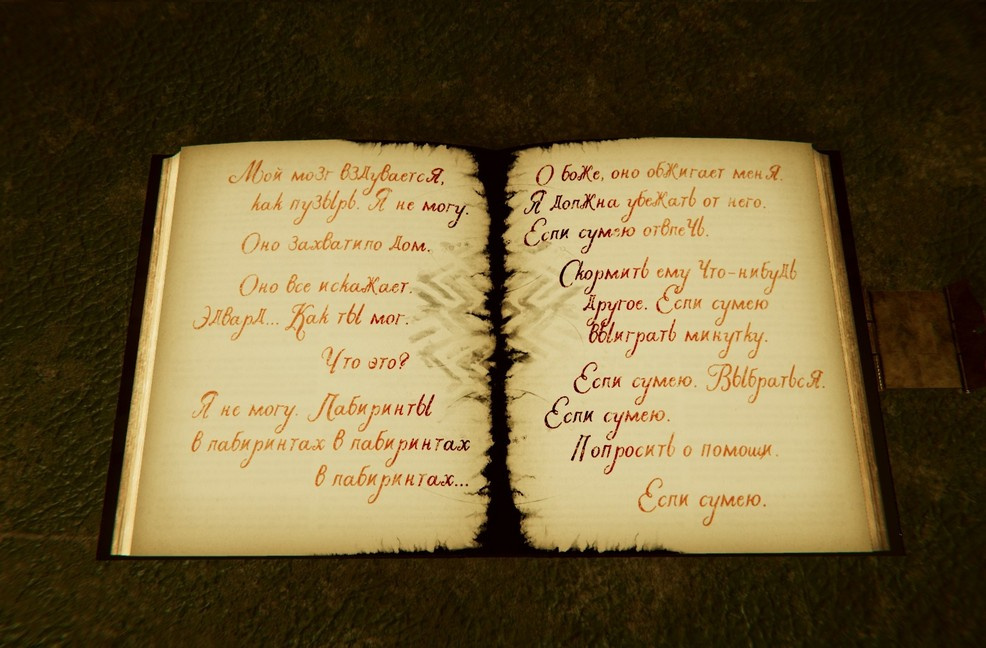 Мой мозг вздувается,
как пузырь. Я не могу.
Оно захватило дом.
Оно все искажает.
Эдвард... Как ты мог.
Что это?
Я не могу. Лабиринты
в лабиринтах в лабиринтах
в лабиринтах...
О боже, оно обжигает меня.
Я должна убежать от него.
Если сумею отвлечь.
Скормить ему что-нибудь
другое. Если сумею
выиграть минутку.
Если сумею. Выбраться.
Если сумею.
Попросить о помощи.
Если сумею.